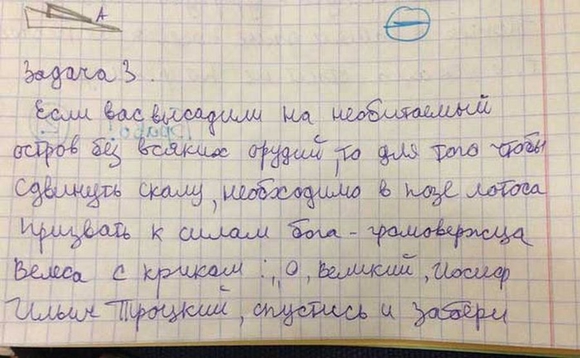 А
Задача 3.
Если вас высадили на необитаемый
остров без всяких орудий, то для того чтобы
сдвинуть скалу, необходимо в позе лотоса
призвать к силам бога - громовержца
Велеса с криком: „О, великий, Иосиф
Ильич Троцкий, спустись и забери